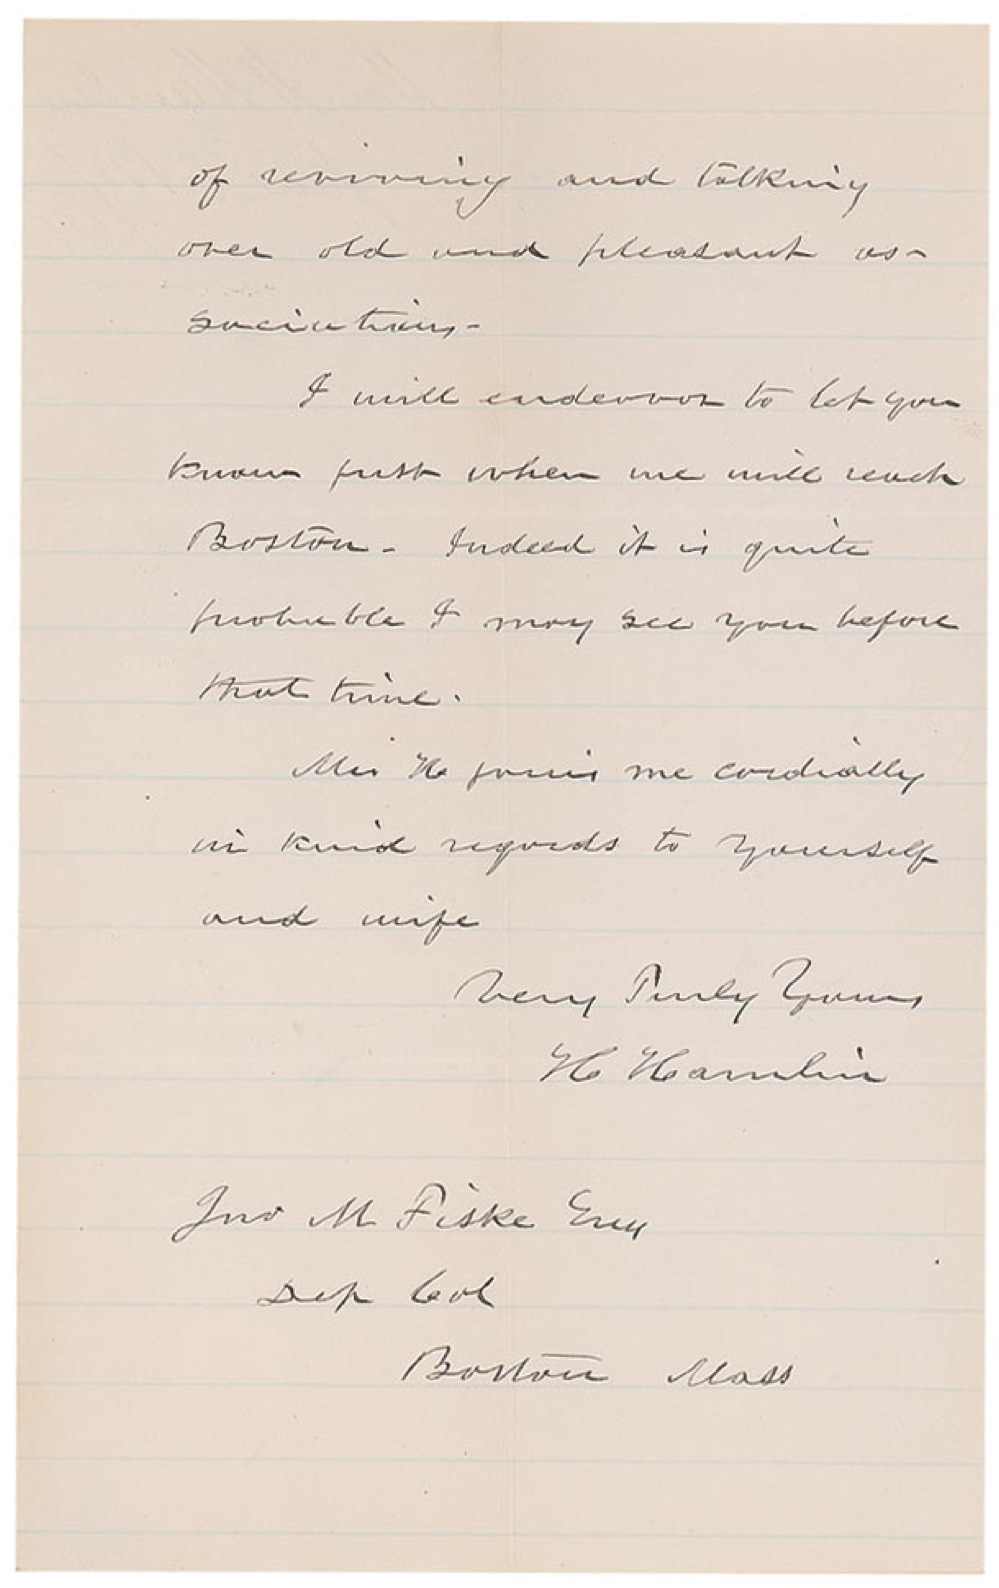 of reviving and talking
over old and pleasant as-
sociations-
I will endeavor to let you
know just when we will reach
Boston- Indeed it is quite
probable I may see you before
that time.
Mrs H joins me cordially
in kind regards to yourself
and wife
Very Truly Yours
H Hamlin
Jno M Fiske Esq
Dep Col
Boston Mass